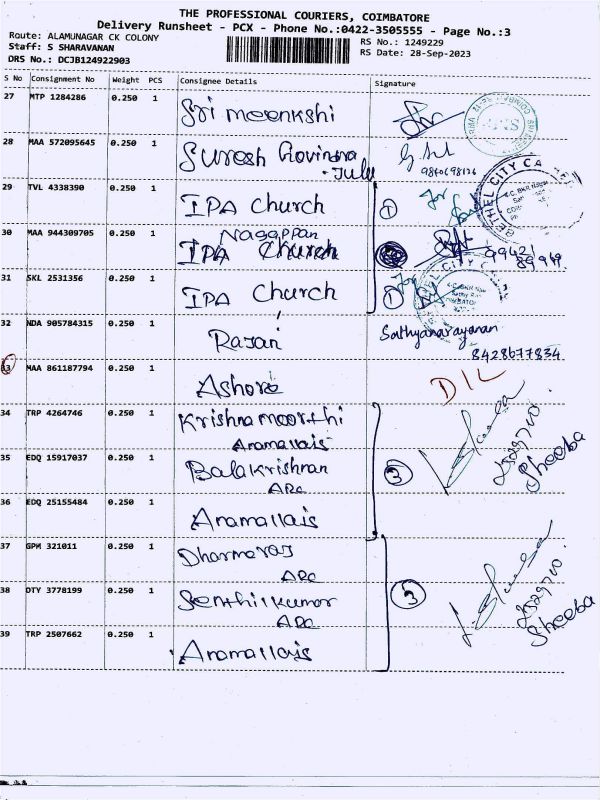 THE PROFESSIONAL COURIERS, COIMBATORE
Delivery Runsheet - PCX - Phone No.:0422-3505555 - Page No.:3
Route: ALAMUNAGAR CK COLONY
Staff: S SHARAVANAN
DRS No.: DCJB124922903
RS No.: 1249229
RS Date: 28-Sep-2023
S No Consignment No Weight PCS Consignee Details Signature
27 MTP 1284286 0.250 1 Sri meenkshi
28 MAA 572095645 0.250 1 Suresh Govinna
July
9840698126
29 TVL 4338390 0.250 1 IPA Church ①
for
BETHEL CITY
30 MAA 944309705 0.250 1 Nagappan
IPA Church
99421
89949
31 SKL 2531356 0.250 1 IPA Church ①
for
32 NDA 905784315 0.250 1 Rajan Sathyanarayanan
8428677834
33 MAA 861187794 0.250 1 Ashore D/L
34 TRP 4264746 0.250 1 Krishnamoorthi
Anamallais
35 EDQ 15917037 0.250 1 Balakrishnan ③
ARC
2529700.
Sheeba
36 EDQ 25155484 0.250 1 Anamallais
37 GPM 321011 0.250 1 Dharmaraj
ARC
38 OTY 3778199 0.250 1 Senthilkumar ③
ARC
2529700.
Sheeba
39 TRP 2507662 0.250 1 Anamallais